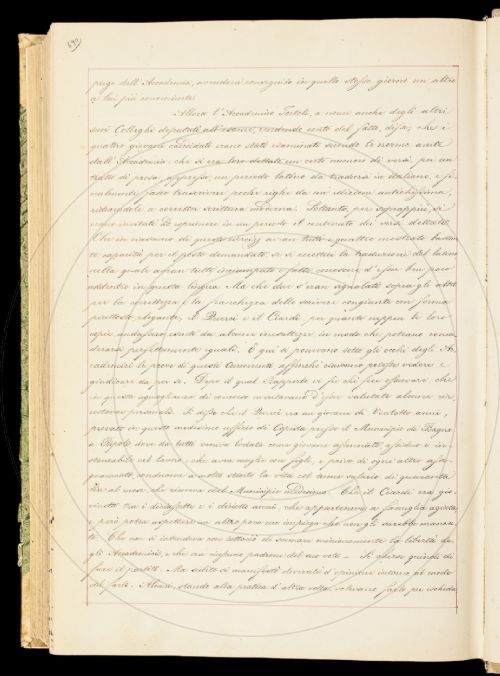 690
pregio dell'Accademia, avendone conseguito in quello stesso giorno un altro
a lui più conveniente.
Allora l'Accademico Tortoli, a nome anche degli altri
suoi Colleghi deputati all'esame, rendendo conto del fatto, disse, che i
quattro giovani candidati erano stati esaminati secondo le norme avute
dall'Accademia: che si era loro dettato un certo numero di versi, poi un
tratto di prosa, appresso un periodo latino da tradursi in italiano, e fi-
nalmente fatto trascrivere poche righe da un'edizione antichissima,
riducendole a corretta scrittura moderna. Soltanto, per soprappiù, si
erano invitati ad esprimere in un periodo il contenuto dei versi dettati.
Che in ciascuno di questi avean tutti e quattro mostrato bastan-
te capacità per il posto domandato, se si eccettui la traduzione del latino
nella quale aveano tutti inciampato e fatto conoscere d'esser ben poco
addentro in questa lingua. Ma che due s'eran segnalati sopra gli altri
per la correttezza e la franchezza dello scrivere congiunta con forma
piuttosto elegante, il Pucci e il Ciardi, per quanto neppur le loro
copie andassero esenti da alcune inesattezze, in modo che poteano consi-
derarsi perfettamente uguali. E qui si ponevano sotto gli occhi degli Ac-
cademici le prove di questi Concorrenti affinchè ciascuno potesse vedere e
giudicare da per se. Dopo il qual Rapporto vi fu chi fece osservare che
in questa uguaglianza di merito meritavano d'esser valutate alcune cir-
costanze personali. Si disse che il Pucci era un giovane di Ventotto anni,
provato in questo medesimo ufficio di Copista presso il Municipio di Bagno
a Ripoli dove da tutti veniva lodato come giovane assennato, assiduo e in-
stancabile nel lavoro; che avea moglie con figli, e privo di ogni altro asse-
gnamento, conduceva a molto stento la vita col tenue salario di quaranta
lire al mese, che riceveva dal Municipio medesimo. Che il Ciardi era gio-
vinetto tra i diciassette e i diciotto anni, che apparteneva a famiglia agiata,
e però potea aspettare un altro poco un impiego che non gli sarebbe manca-
to. Che non si intendeva con tuttociò di scemare minimamente la libertà de-
gli Accademici, e che era ciascuno padrone del suo voto. Si chiese quindi di
fare il partito. Ma subito si manifestò diversità d'opinione intorno al modo
del farlo. Alcuni, stando alla pratica d'altra volta, volevano farlo per ischeda